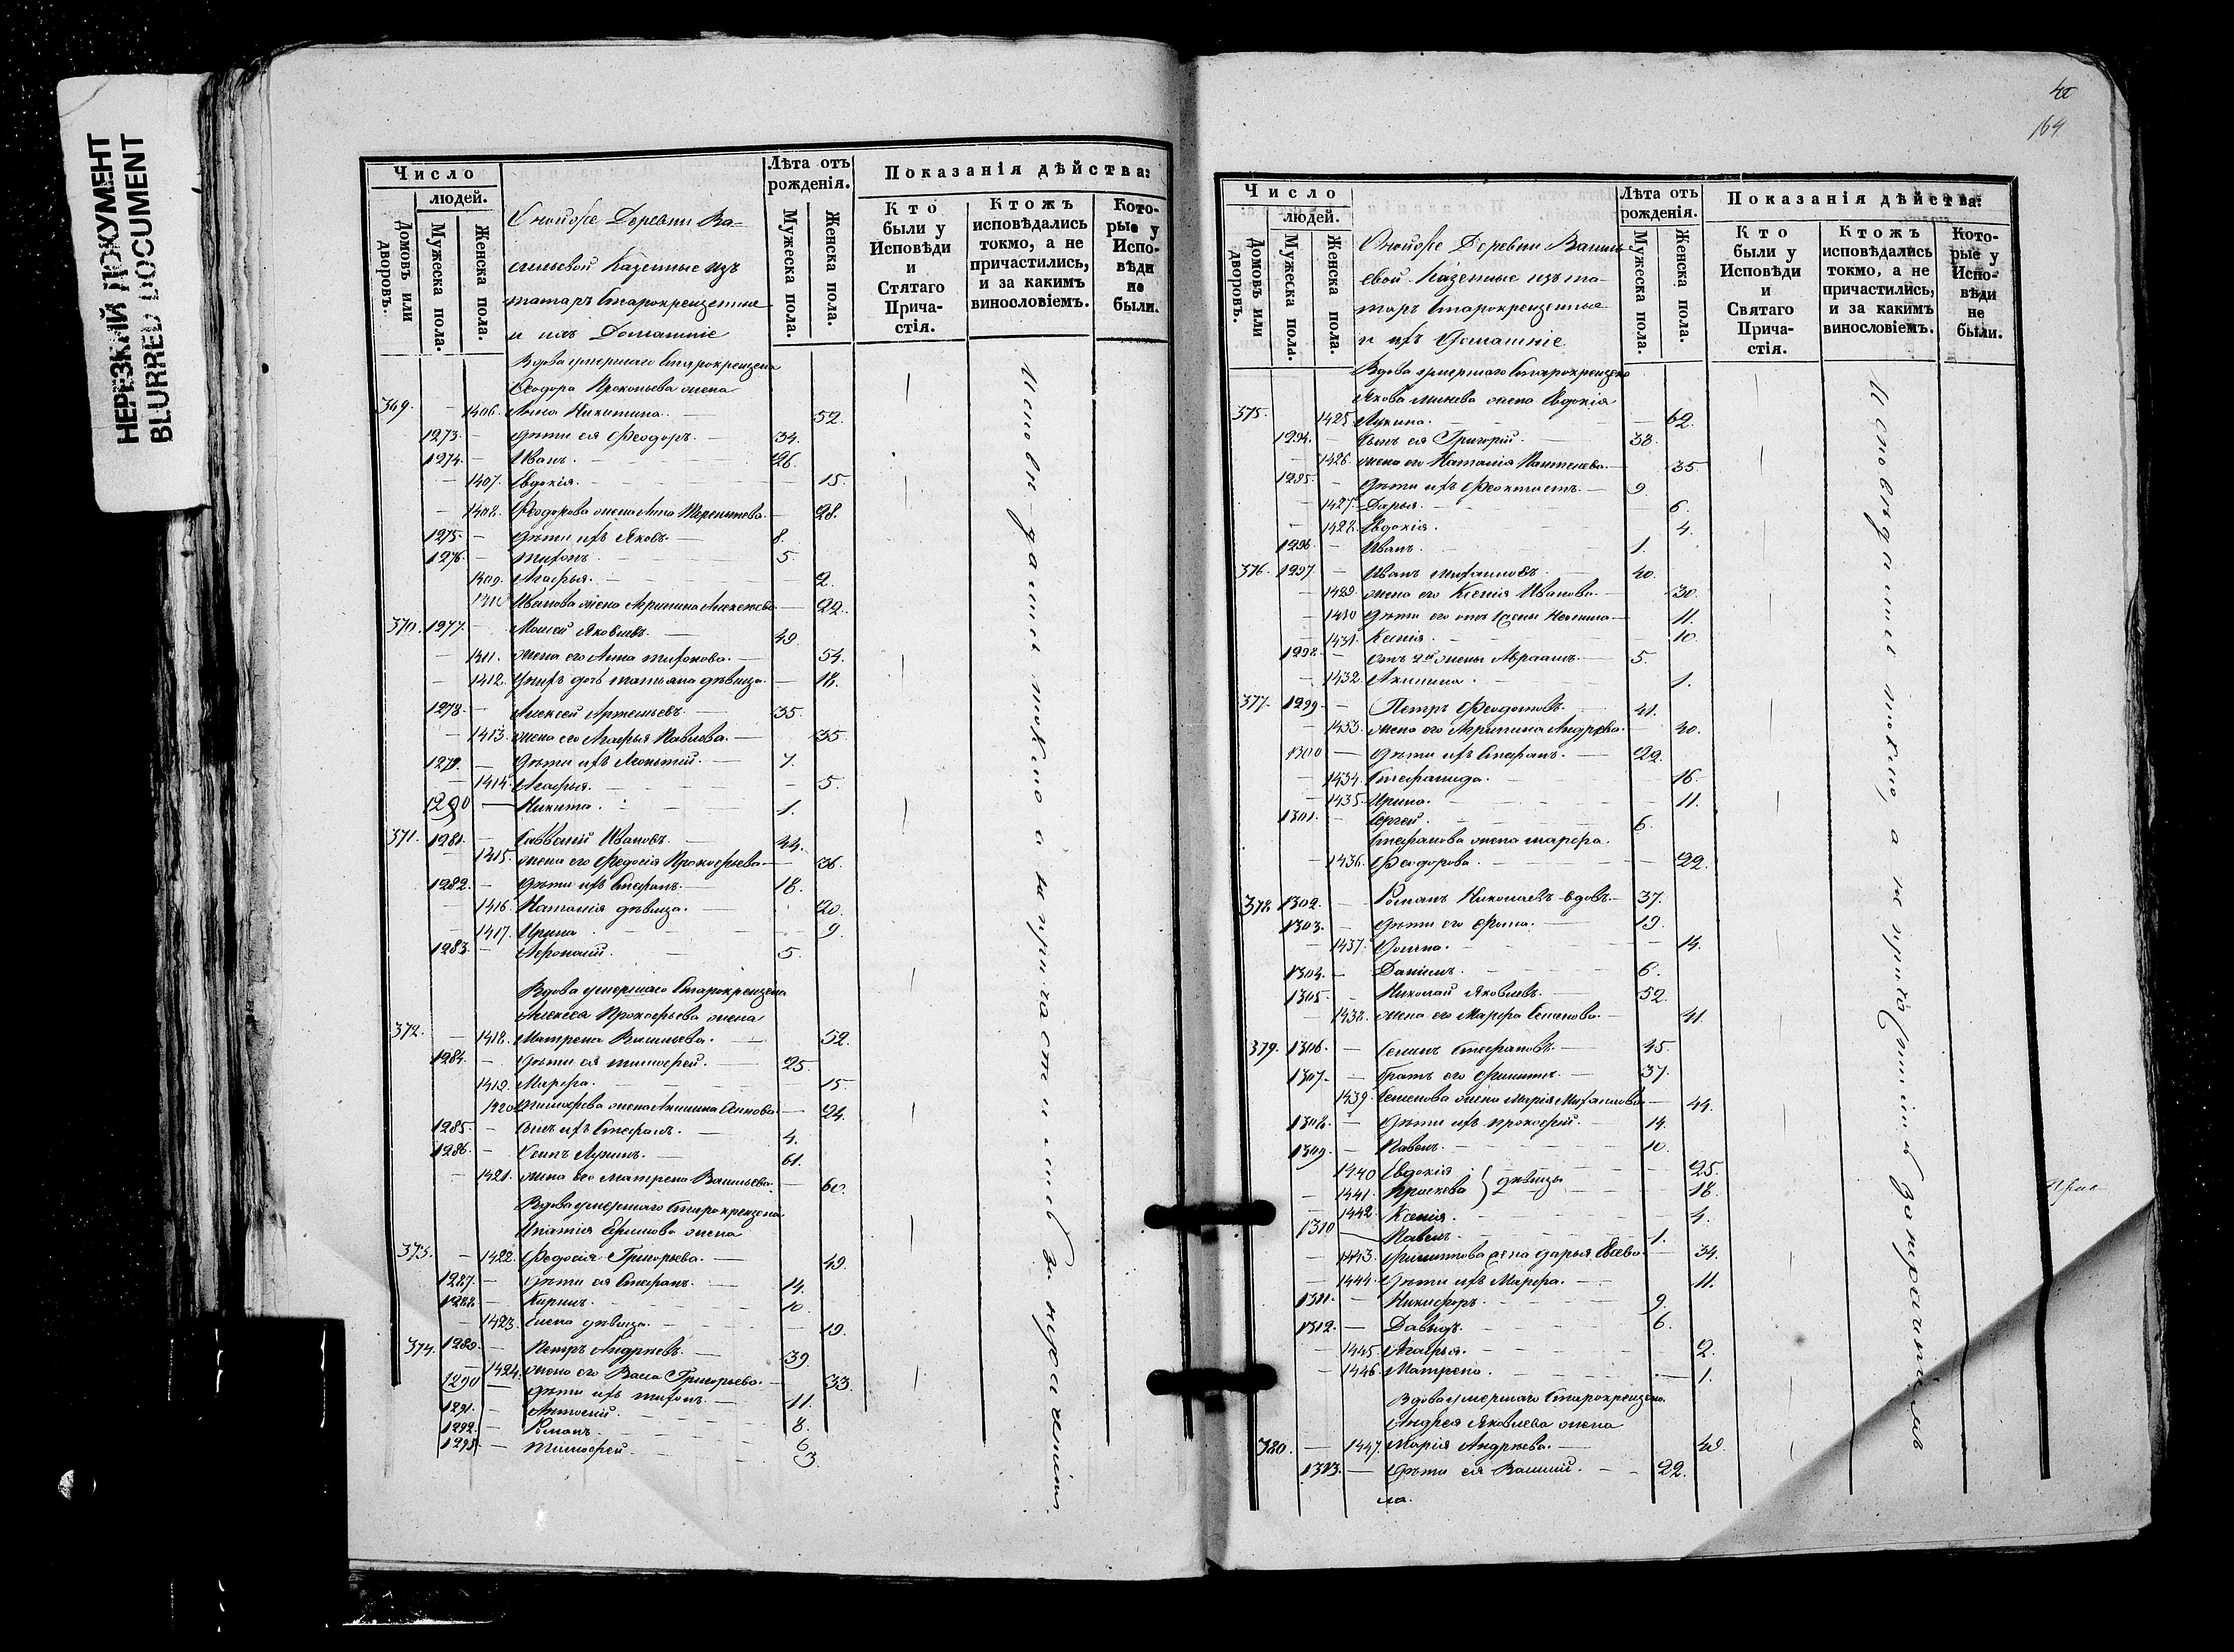 НЕРЕЗКИЙ ДОКУМЕНТ
BLURRED DOCUMENT
Число
людей.
Домовъ или дворовъ.
Мужеска пола.
Женска пола.
Оной же Деревни Ва-
сильевой Казенные изъ
татаръ Старокрещеные
и ихъ Домашніе
Лѣта отъ рожденія.
Мужеска пола.
Женска пола.
Показанія дѣйства:
Кто были у Исповѣди и Стятаго Прича-стія.
Ктожъ исповѣдались токмо, а не причастились, и за какимъ винословіемъ.
Кото-рые у Испо-вѣди не были.
Вдова умершаго Старокрещена
Ѳеодора Прокопьева жена
369. — 1406. Анна Никитина. — 52.
1273. — Дѣти ея Ѳеодоръ. — 34.
1274. — Иванъ. 26.
— 1407. Евдокія. 15.
— 1408. Ѳеодорова жена Анна Терентьева. — 28.
1275. — Дѣти ихъ Яковъ. — 8.
1276. — Тихонъ. 5.
1409. Агафья. 2.
1410 Иванова жена Агрипина Алексеева — 22.
370. 1277. — Мосей Яковлевъ. — 49.
— 1411. жена его Анна Тихонова. — 54.
— 1412. У нихъ дочь Татьяна дѣвица. — 18.
1278. — Алексей Артемьевъ. — 35.
— 1413. жена его Агафья Павлова. — 35.
1279. — Дѣти ихъ Леонтій. — 7.
— 1414. Агафья. 5.
1280 — Никита. 1.
371. 1281. — Савватій Ивановъ. — 44.
— 1415. жена его Ѳедосія Прокофьева. — 36.
1282. — Дѣти ихъ Стефанъ. — 18.
1416. Наталія дѣвица. 20.
1417. Ирина 9.
1283. — Афонасій. 5.
Вдова умершаго Старокрещена
Алексея Прокофьева жена
372. — 1418. Матрена Васильева. 52.
1284. — Дѣти ея Тимофей. — 25.
1419. Марфа. 15.
1420 Тимофева жена Акилина — 24.
1285. — Сынъ ихъ Стефанъ. — 4.
1286. — Осипъ Лукинъ. — 61.
— 1421. жена его Матрена Васильева. — 60.
Вдова умершаго Старокрещена
Игнатія Ефимова жена
373. — 1422. Ѳедосія Григорьева. — 49.
1287. — Дѣти ея Стефанъ. — 14.
1288. — Кирилъ. 10.
— 1423. Елена дѣвица. 19.
374. 1289. — Петръ Андреевъ. — 39.
1424. жена его Васса Григорьева. — 33.
1290 — Дѣти ихъ Тихонъ. — 11.
1291. — Антоній. 8.
1292. — Романъ. 6
1293. — Тимофей. 3.
Исповѣдались токмо а не причастились за нераченіемъ.
164
Число
людей.
Домовъ или дворовъ.
Мужеска пола.
Женска пола.
Оной же Деревни Василь-
евой Казенные изъ та-
таръ Старокрещеные
и ихъ Домашніе
Лѣта отъ рожденія.
Мужеска пола.
Женска пола.
Показанія дѣйства:
Кто были у Исповѣди и Святаго Прича-стія.
Ктожъ исповѣдались токмо, а не причастились, и за какимъ винословіемъ.
Кото-рые у Испо-вѣди не были.
Вдова умершаго Старокрещена
Якова жена Евдокія
375. 1425 Лукина. — 62.
1294. — Сынъ ея Григорій. — 38.
— 1426. жена его Наталія — 35.
1295. — Дѣти ихъ Ѳеоктистъ. — 9.
— 1427. Дарья. 6.
— 1428. Евдокія. 4.
1296. — Иванъ. 1.
376. 1297. — Иванъ Михаиловъ. 40.
— 1429. жена его Ксенія Иванова. — 30.
— 1430 Дѣти его отъ 1 жены — 11.
— 1431. Ксенія. 10.
1298. — Отъ 2й жены Авраамъ. — 5.
— 1432. Акилина. 1.
377. 1299. — Петръ — 41.
— 1433. жена его Агрипина Андреева. 40.
1300 — Дѣти ихъ Стефанъ. — 22.
— 1434. Стефанида. 16.
— 1435. Ирина. 11.
1301. — Сергей. 6.
Стефанова жена Марфа
— 1436. Ѳеодорова. 22.
378. 1302. — Романъ Николаевъ вдовъ. — 37.
1303. — Дѣти его Фома. — 19.
— 1437. 14.
1304. — Данилъ. 6.
1305. — Николай Яковлевъ. — 52.
— 1438. жена его Марфа Семенова. — 41.
379. 1306. — Семенъ Стефановъ. — 45.
1307. — Братъ его Филиппъ. — 37.
1439. Семенова жена Марія Михаилова — 44.
1308. — Дѣти ихъ Прокофій. — 14.
1309. — Павелъ. 10.
1440 Евдокія } дѣвицы 25.
1441. Праскева 18.
1442. Ксенія. 4.
1310 — Павелъ. 1.
— 1443. Филиппова жена Дарья — 34.
— 1444. Дѣти ихъ Марфа. — 11.
1311. — Никифоръ. 9.
1312. — Давыдъ. 6.
— 1445. Агафья. 2.
— 1446. Матрена. 1.
Вдова умершаго Старокрещена
Андрея Яковлева жена
380. — 1447. Марія Андреева. — 49.
1313. — Дѣти ея Василій. 22.
Исповѣдались токмо, а не причастились за нераченіемъ